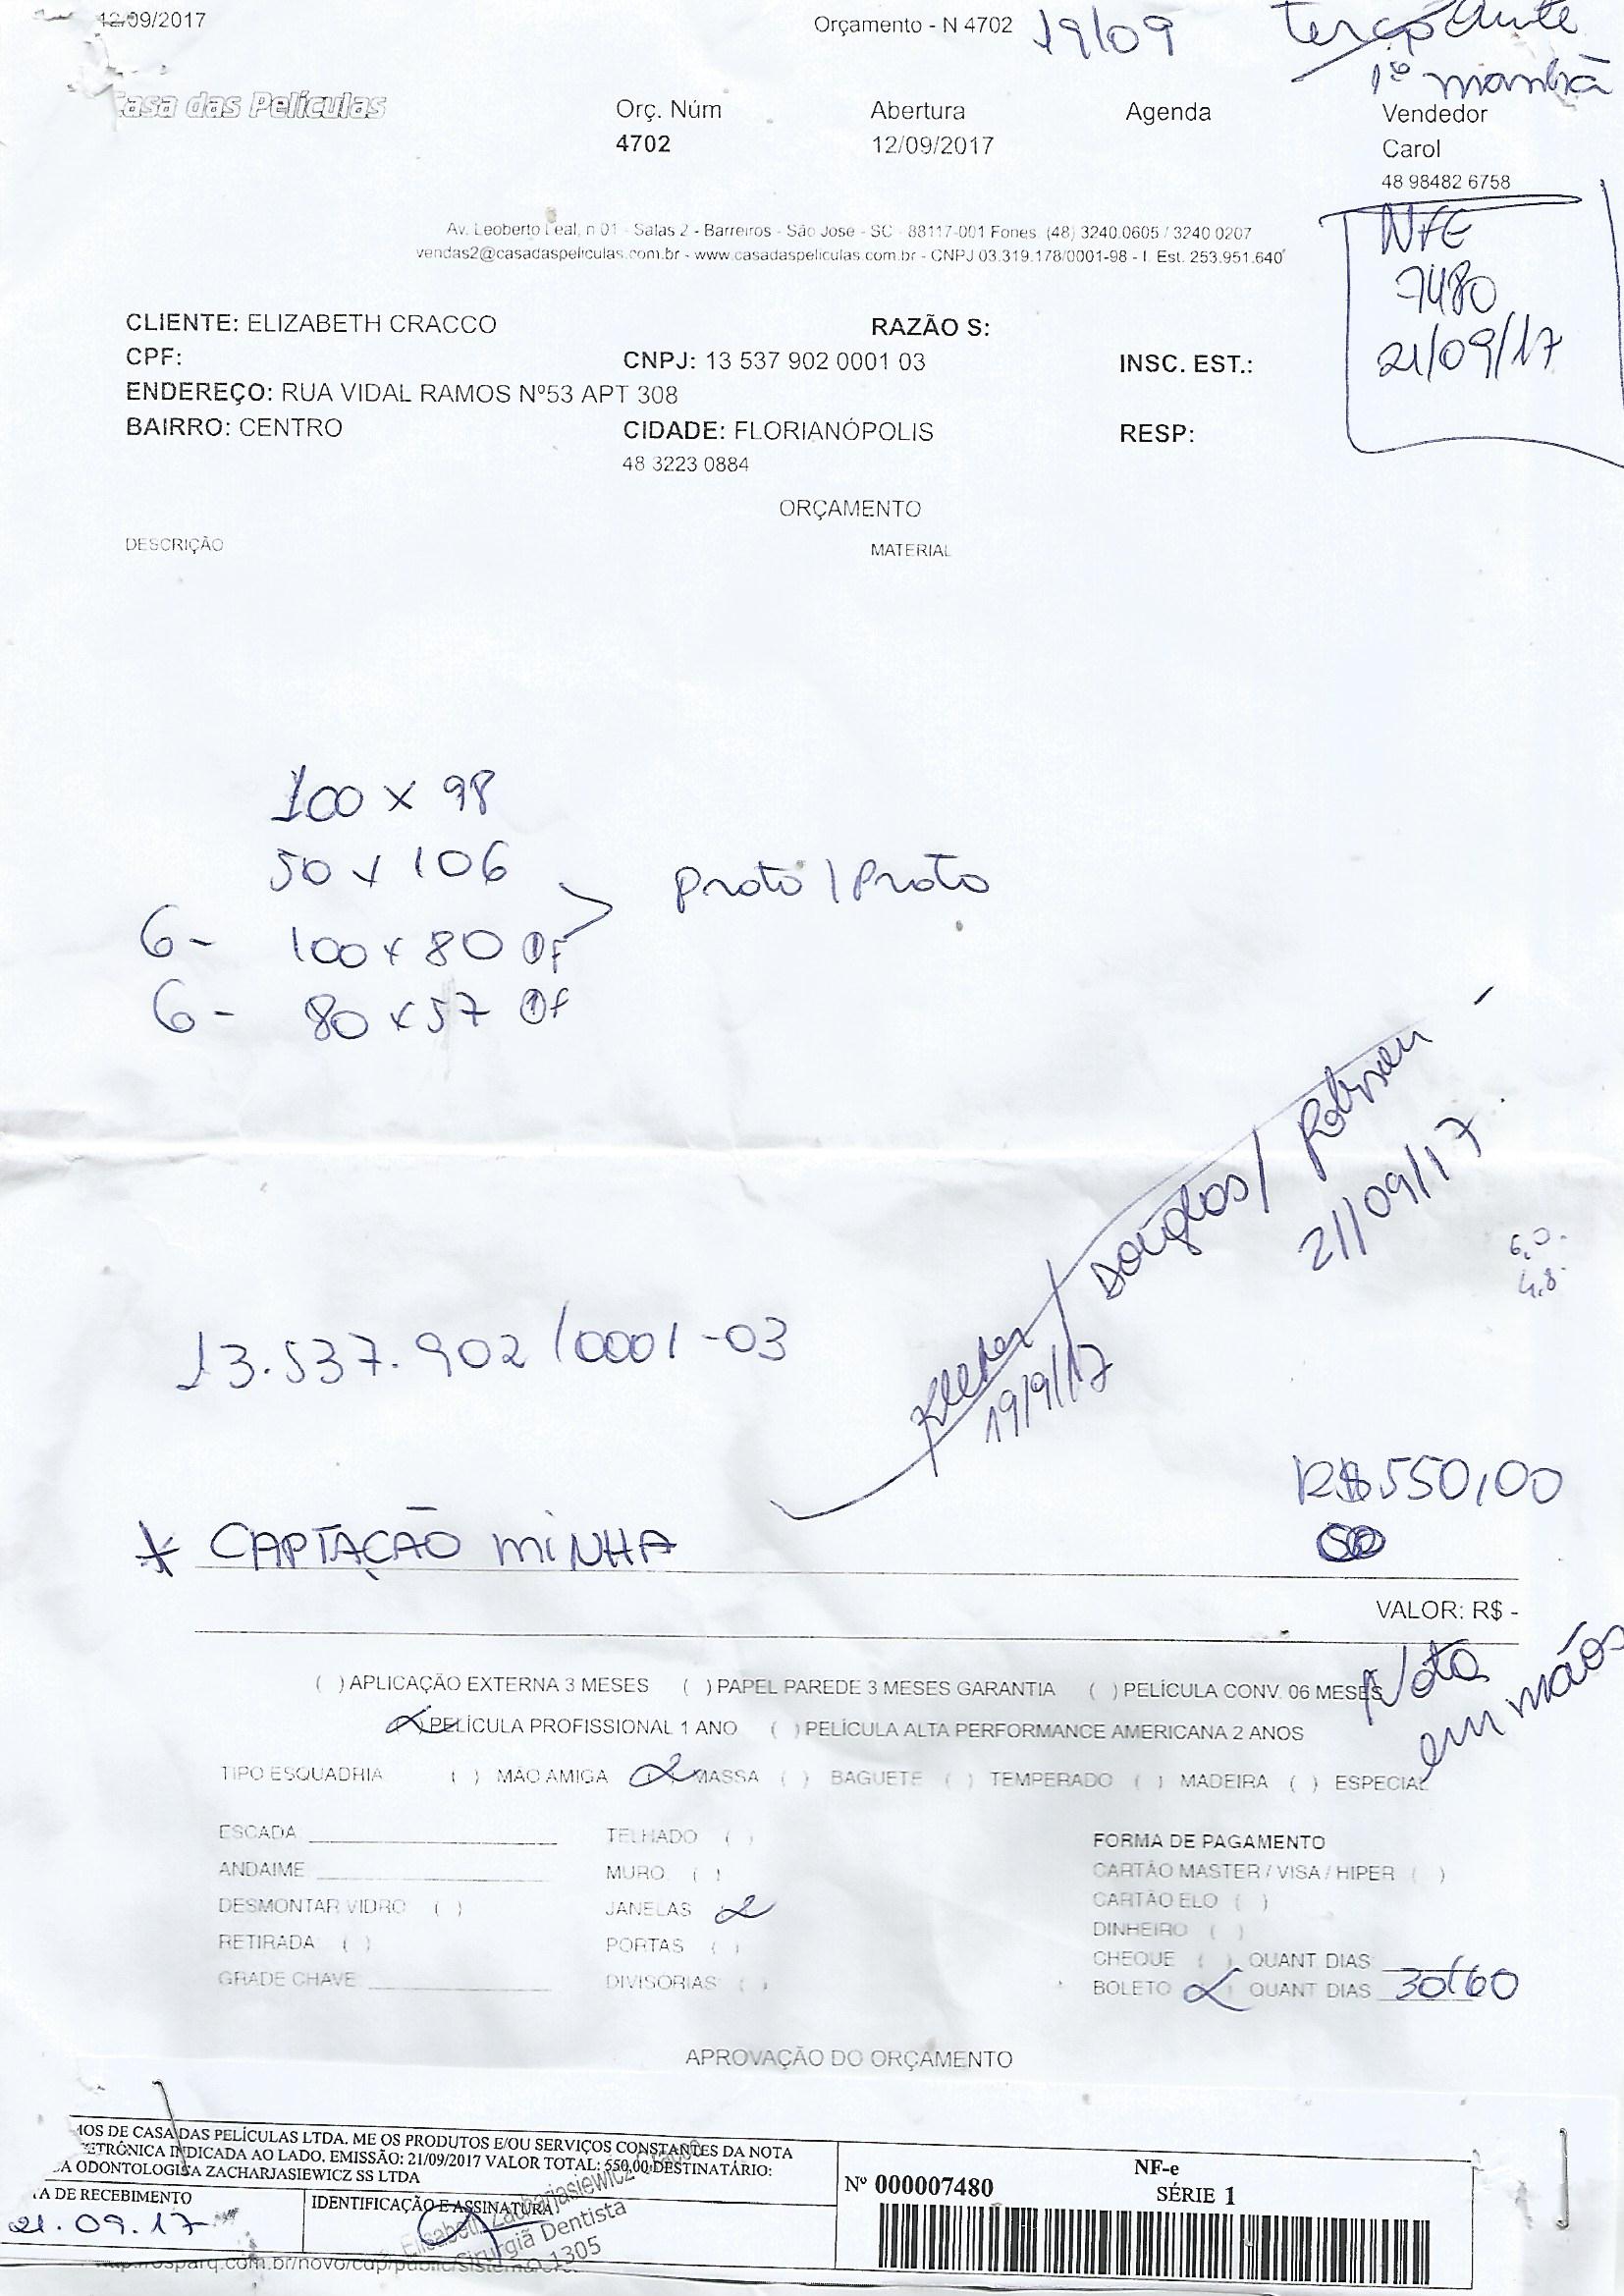 12/09/2017 Orçamento - N 4702 19/09
1º manhã
Casa das Películas
Orç. Núm Abertura Agenda Vendedor
4702 12/09/2017 Carol
48 98482 6758
NFE
7480
21/09/17
Av. Leoberto Leal, n 01 - Salas 2 - Barreiros - São José - SC - 88117-001 Fones (48) 3240.0605 / 3240 0207
vendas2@casadaspeliculas.com.br - www.casadaspeliculas.com.br - CNPJ 03.319.178/0001-98 - I. Est. 253.951.640
CLIENTE: ELIZABETH CRACCO RAZÃO S:
CPF: CNPJ: 13 537 902 0001 03 INSC. EST.:
ENDEREÇO: RUA VIDAL RAMOS Nº53 APT 308
BAIRRO: CENTRO CIDADE: FLORIANÓPOLIS RESP:
48 3223 0884
ORÇAMENTO
DESCRIÇÃO MATERIAL
100 x 98
50 x 106
prata / prata
6- 100 x 80
6- 80 x 57
Douglas / Robson
21/09/17
6,0
4,8
Kleber
19/9/17
13.537.902/0001-03
R$ 550,00
* CAPTAÇÃO MINHA
VALOR: R$ -
Nota
em mãos
( ) APLICAÇÃO EXTERNA 3 MESES ( ) PAPEL PAREDE 3 MESES GARANTIA ( ) PELÍCULA CONV. 06 MESES
(x) PELÍCULA PROFISSIONAL 1 ANO ( ) PELÍCULA ALTA PERFORMANCE AMERICANA 2 ANOS
TIPO ESQUADRIA ( ) MAO AMIGA (x) MASSA ( ) BAGUETE ( ) TEMPERADO ( ) MADEIRA ( ) ESPECIAL
ESCADA TELHADO ( ) FORMA DE PAGAMENTO
ANDAIME MURO ( ) CARTÃO MASTER / VISA / HIPER ( )
DESMONTAR VIDRO ( ) JANELAS x CARTÃO ELO ( )
RETIRADA ( ) PORTAS ( ) DINHEIRO ( )
GRADE CHAVE DIVISÓRIAS ( ) CHEQUE ( ) QUANT DIAS
BOLETO (x) QUANT DIAS 30/60
APROVAÇÃO DO ORÇAMENTO
MOS DE CASA DAS PELÍCULAS LTDA. ME OS PRODUTOS E/OU SERVIÇOS CONSTANTES DA NOTA
ETRÔNICA INDICADA AO LADO. EMISSÃO: 21/09/2017 VALOR TOTAL: 550,00 DESTINATÁRIO:
A ODONTOLOGISTA ZACHARJASIEWICZ SS LTDA
TA DE RECEBIMENTO IDENTIFICAÇÃO E ASSINATURA
21.09.17
Zacharjasiewicz Cracco
Cirurgiã Dentista
1305
Nº 000007480 NF-e
SÉRIE 1